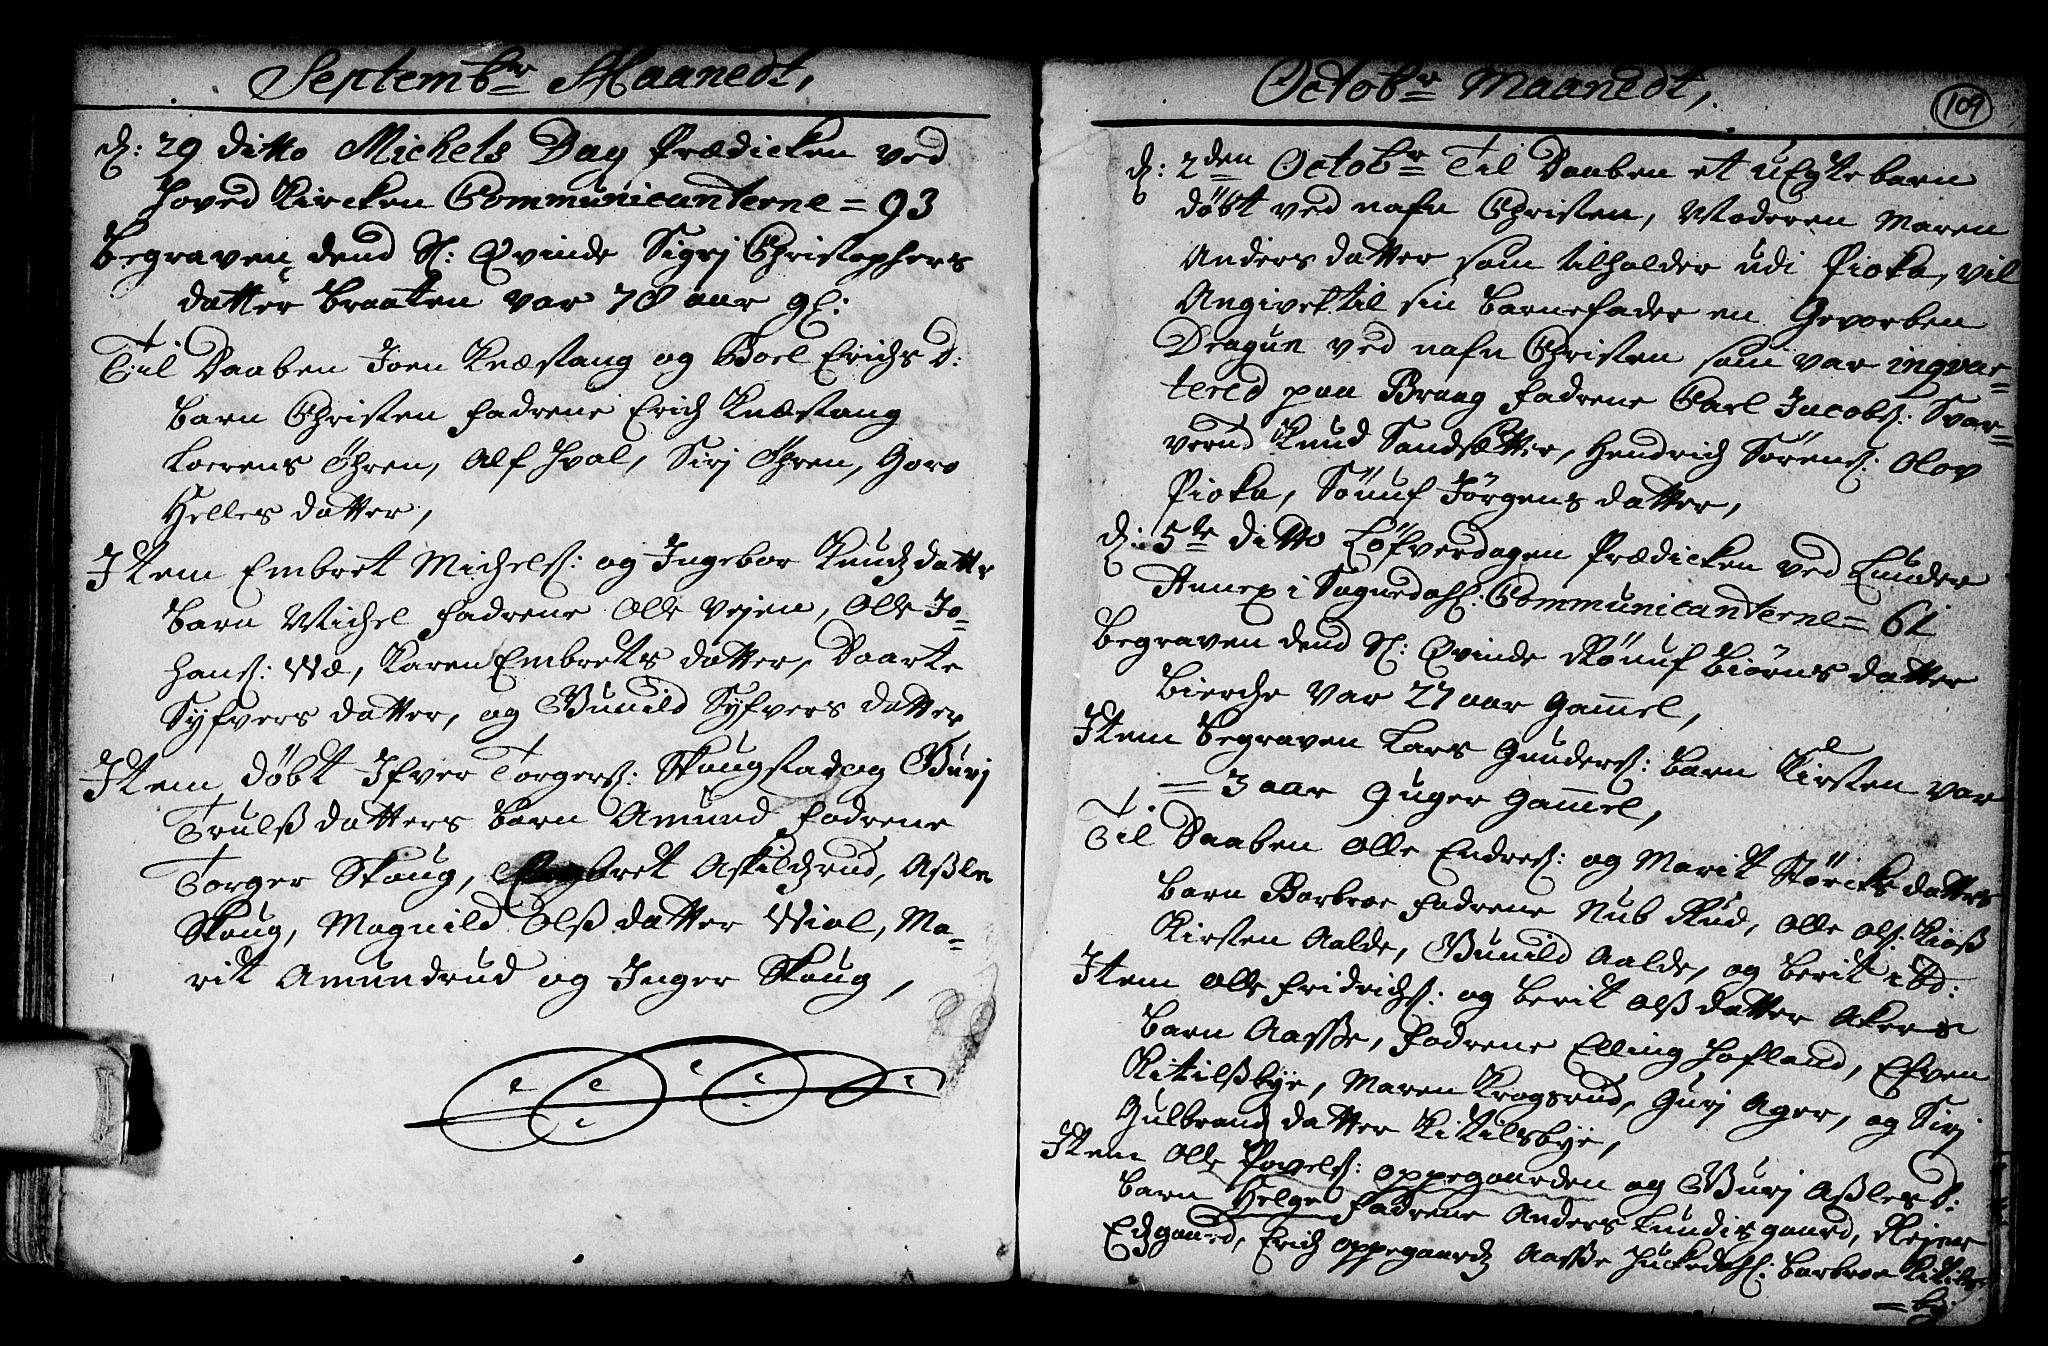 Septembr Maanedt,
d: 29 ditto Michels Dag Prædicken ved
Hoved Kircken Communicanterne = 93
Begraven dend Sl: Qvinde Sigrj Christophers
datter Braaten var 78 aar gl:
Til Daaben Joen Knæstang og Boel Erichs D:
barn Christen fadrene Erich Knæstang
Lorens Øhren, Alf Hval, Sirj Øhren, Goro
Helles datter,
Item Embret Michels: og Ingebor Knudz datter
barn Michel fadrene Olle Vejen, Olle Jo=
hans: Wæ, Karen Embrets datter, Daarte
Syfvers datter, og Gunild Syfvers datter
Item, døbt Ifver Torgers: Skougstad og Gurj
Trulß datters barn Amund fadrene
Torger Skoug, Embret Askildzrud, Aßle
Skoug, Magnild Olß datter Wiol, Ma=
rit Amundrud og Inger Skoug,
Octobr Maanedt,
109
d: 2den Octobr Til Daaben et uEgte barn
døbt ved nafn Christen, Moderen Maren
Anders datter som tilholder udi Pioka, vil
Angivet til sin barnefader en Gevorben
Dragun ved nafn Christen som var ingvar=
tered paa Braag fadrene Carl Jacobs: Svar=
verud Knud Sandsætter, Hendrich Sørens: Olov
Pioka, Sønuf Jørgens datter,
d: 5te ditto Løfverdagen Prædicken ved Lunder
Annex i Sognedahl: Communicanterne = 61
Begraven dend Sl: Qvinde Rønuf Biørns datter
Bierche var 27 aar Gammel,
Item Begraven Lars Gunders: barn Kirsten var
= 3 aar Guger Gammel,
Til Daaben Olle Endres: og Marit Størcks datters
barn Barbroe fadrene Nub Rud, Olle Ols: Kioß
Kirsten Aalde, Gunild Aalde, og Berit ibd:
Item Olle Fridrichs: og Berit Olß datter Akers
barn Aasse, fadrene Elling Hofland, Efven
Kitilßbye, Maren Krogsrud, Gurj Ager, og Sirj
Gulbrandz datter Kitilsbye,
Item Olle Povels: Oppegaarden og Gurj Aßles D:
barn Helge fadrene Anders Lundisgaard, Rejer
Edzgaard, Erich Oppegaardz Aasse Huckedahl: Barbroe Kitils
= by: